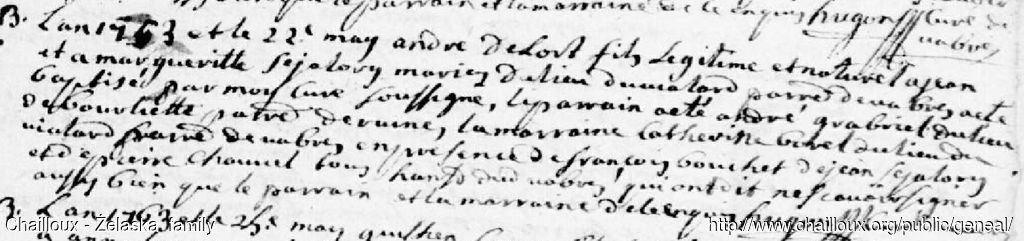 le parrain et la marraine de ce enquis hugon Curé de
vabres
B. L'an 1763 et le 22e may andré delort fils legitime et naturel a jean
et a margueritte sejalory mariés du lieu du vialard parre de vabres a eté
baptisé par moy Curé soussigné, le parrain a eté andré grabriel du lieu
de bourliette parre de ruines, la marraine Catherine du lieu du
vialard parre de vabres en presence de françois bouchet de jean sejalory
et de pierre Chauvel tous hans dud vabres qui ont dit ne scavoir signer
aussy bien que le parrain et la marraine de ce enquis
B. L'an 1763 et le 25e may
Chailloux - Zelaska family
http://www.chailloux.org/public/geneal/